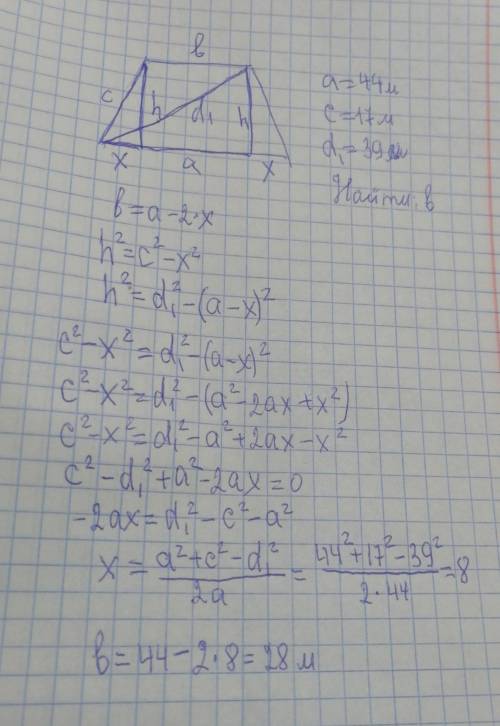 в
c h d₁ h
x a x
a=44м
c=17м
d₁=39м
Найти: в
в=a-2·x
h²=c²-x²
h²=d₁²-(a-x)²
c²-x²=d₁²-(a-x)²
c²-x²=d₁²-(a²-2ax+x²)
c²-x²=d₁²-a²+2ax-x²
c²-d₁²+a²-2ax=0
-2ax=d₁²-c²-a²
x=(a²+c²-d₁²)/2a=(44²+17²-39²)/2·44=8
в=44-2·8=28м